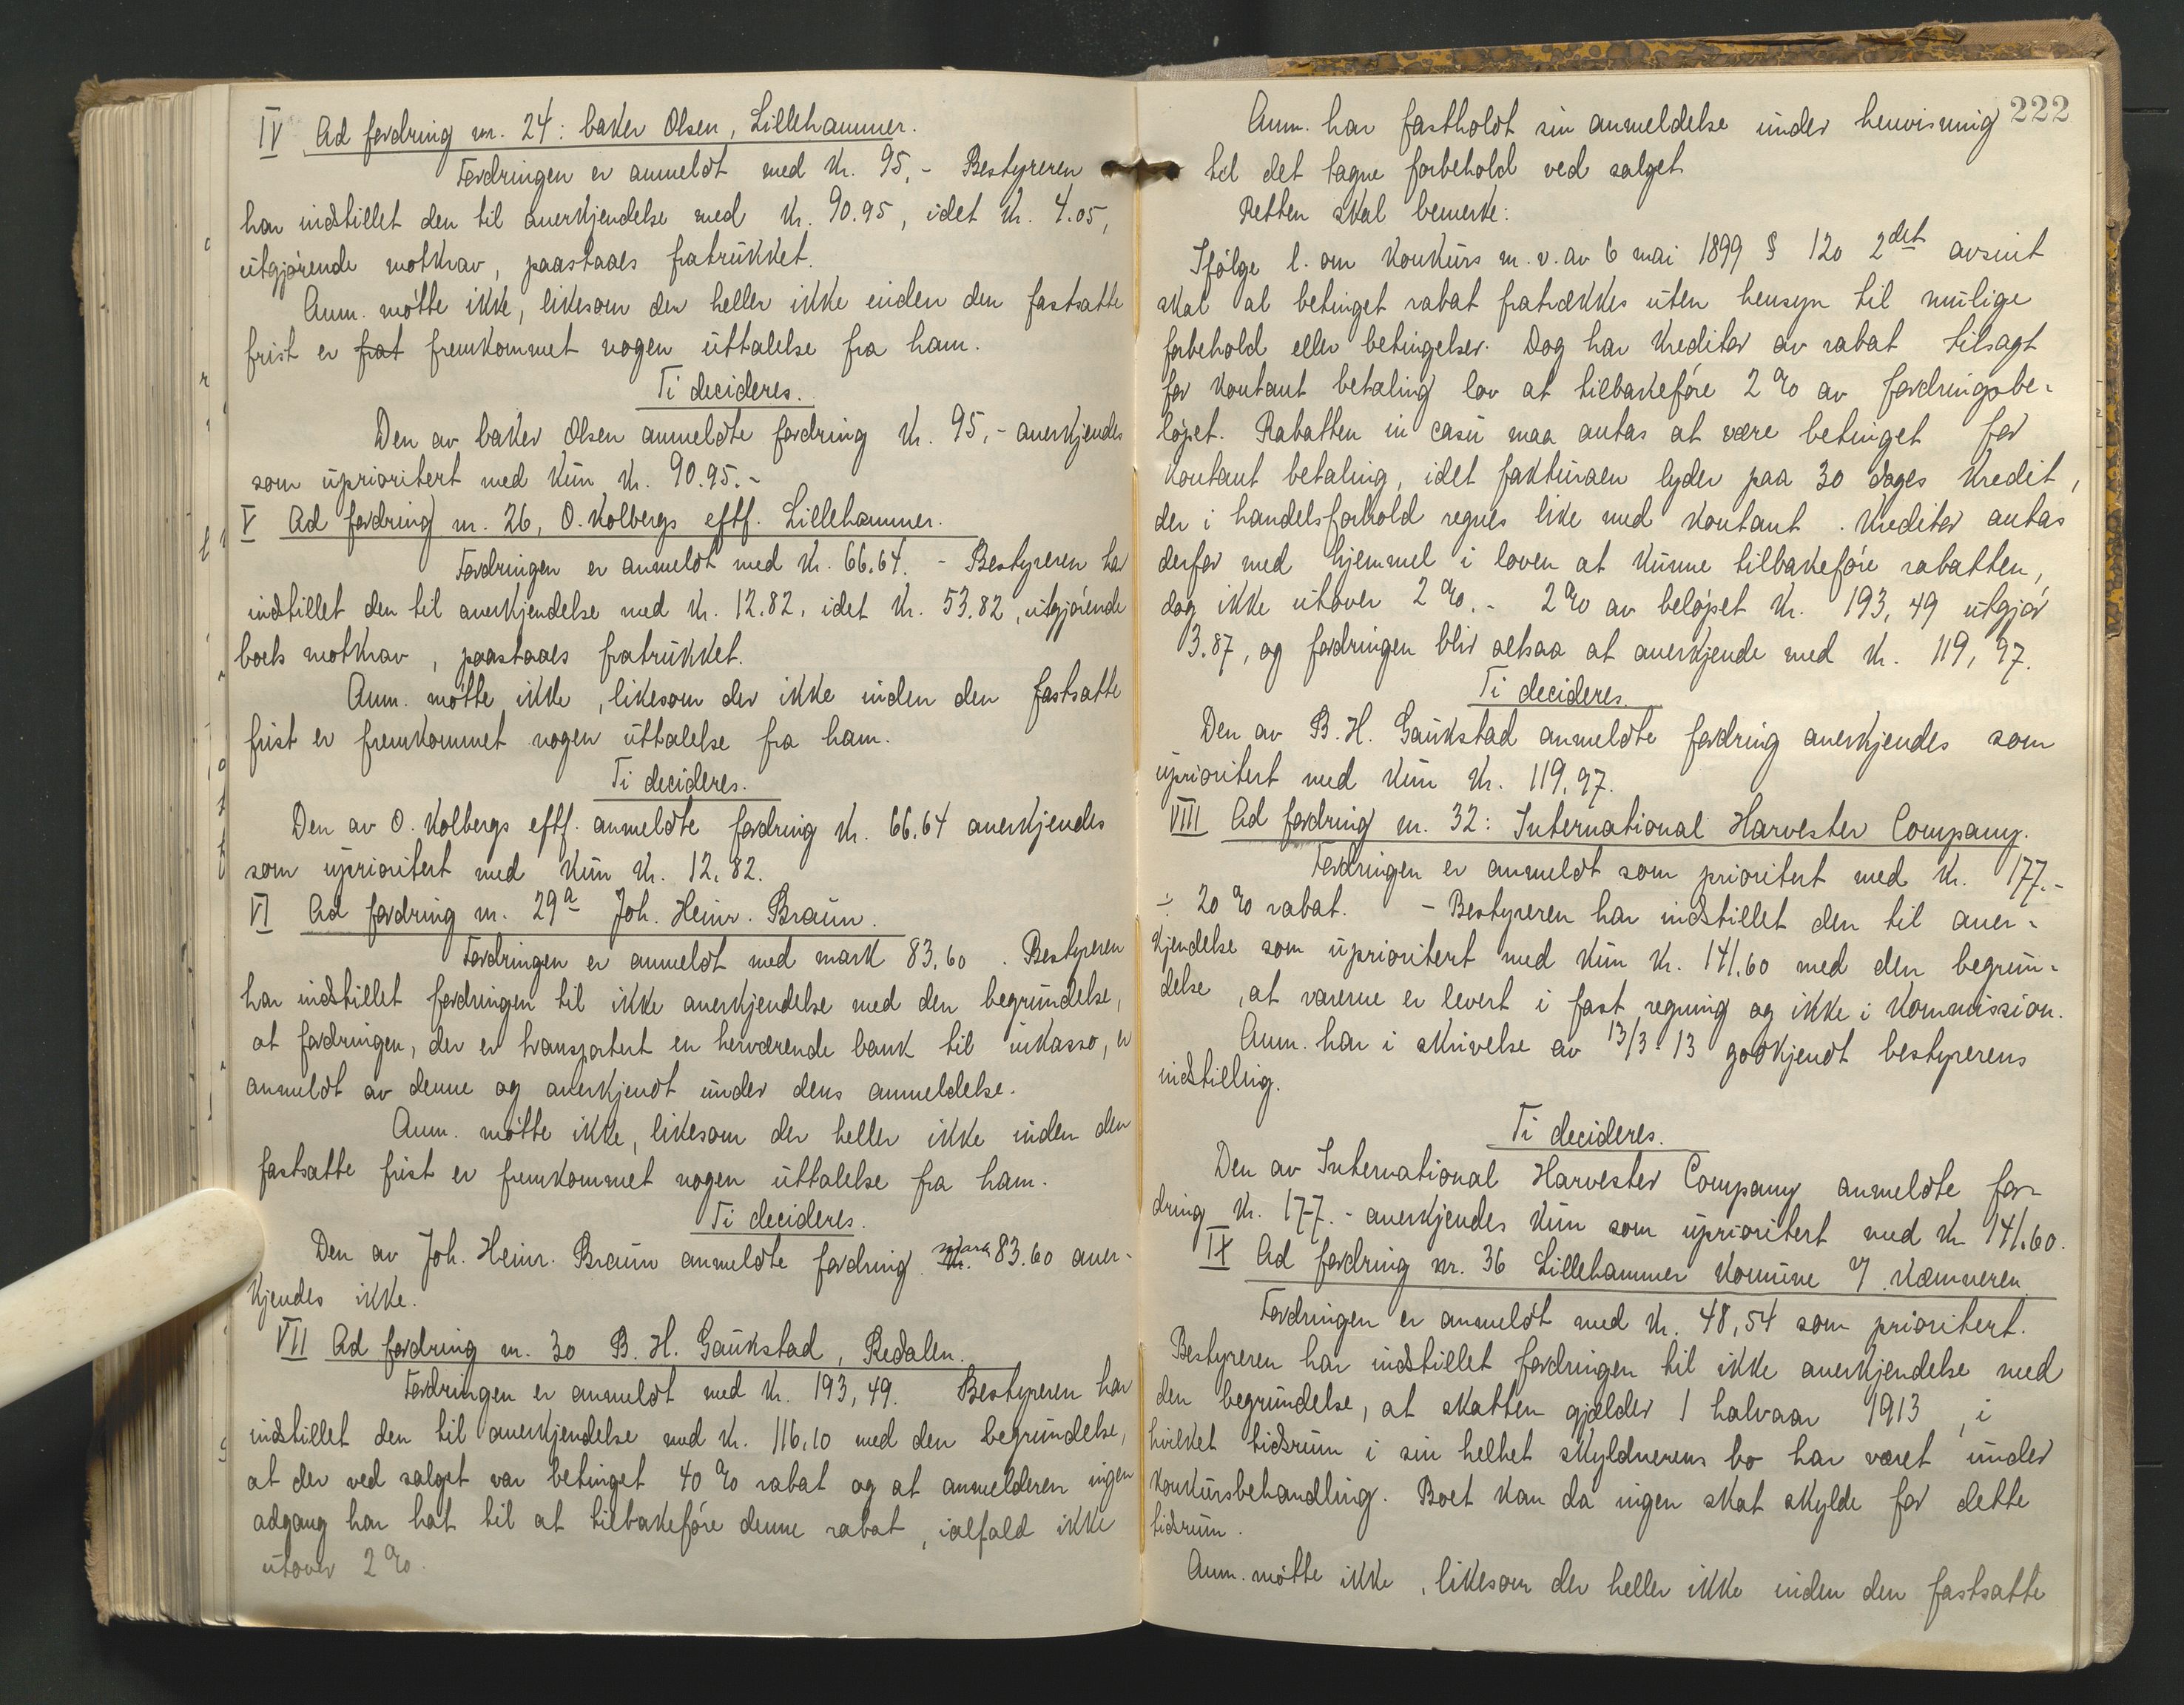 IV Ad fordring nr. 24: baker Olsen, Lillehammer.
Fordringen er anmeldt med kr. 95,- Bestyreren
har indstillet den til anerkjendelse med kr. 90.95, idet kr. 4.05,
utgjørende motkrav, paastaaes fratrukket.
Anm. møtte ikke, likesom der heller ikke inden den fastsatte
frist er frat fremkommet nogen uttalelse fra ham.
Ti decideres.
Den av baker Olsen anmeldte fordring kr. 95,- anerkjendes
som uprioritert med kun kr. 90.95.-
V Ad fordring nr. 26, O. Kolbergs eftf. Lillehammer.
Fordringen er anmeldt med kr. 66.64. - Bestyreren har
indstillet den til anerkjendelse med kr. 12.82, idet kr. 53.82, utgjørende
boets motkrav, paastaaes fratrukket.
Anm. møtte ikke, likesom der ikke inden den fastsatte
frist er fremkommet nogen uttalelse fra ham.
Ti decideres.
Den av O. Kolbergs eftf. anmeldte fordring kr. 66.64 anerkjendes
som uprioritert med kun kr. 12.82.
VI Ad fordring nr. 29a Joh. Heinr. Braun.
Fordringen er anmeldt med mark 83.60. Bestyreren
har indstillet fordringen til ikke anerkjendelse med den begrundelse,
at fordringen, der er transportert en herværende bank til inkasso, er
anmeldt av denne og anerkjendt under dens anmeldelse.
Anm. møtte ikke, likesom der heller ikke inden den
fastsatte frist er fremkommet nogen uttalelse fra ham.
Ti decideres.
Den av Joh. Heinr. Braun anmeldte fordring kr. mark 83.60 aner-
kjendes ikke.
VII Ad fordring nr. 30 B. H. Gaukstad, Redalen.
Fordringen er anmeldt med kr. 193,49. Bestyreren har
indstillet den til anerkjendelse med kr. 116.10 med den begrundelse,
at der ved salget var betinget 40 % rabat og at anmelderen ingen
adgang har hat til at tilbakeføre denne rabat, ialfald ikke
utover 2 %.
222
Anm. har fastholdt sin anmeldelse under henvisning
til det tagne forbehold ved salget.
Retten skal bemerke:
Ifølge l. om konkurs m. v. av 6 mai 1899 § 120 2det avsnit
skal al betinget rabat fratrækkes uten hensyn til mulige
forbehold eller betingelser. Dog har kreditor av rabat tilsagt
for kontant betaling lov at tilbakeføre 2 % av fordringsbe-
løpet. Rabatten in casu maa antas at være betinget for
kontant betaling, idet fakturaen lyder paa 30 dages kredit,
der i handelsforhold regnes like med kontant. Kreditor antas
derfor med hjemmel i loven at kunne tilbakeføre rabatten,
dog ikke utover 2 %. - 2 % av beløpet kr. 193,49 utgjør
3.87, og fordringen blir altsaa at anerkjende med kr. 119,97.
Ti decideres.
Den av B. H. Gaukstad anmeldte fordring anerkjendes som
uprioritert med kun kr. 119.97.
VIII Ad fordring nr. 32: International Harvester Company.
Fordringen er anmeldt som prioritert med kr. 177.-
÷ 20 % rabat. - Bestyreren har indstillet den til aner-
kjendelse som uprioritert med kun kr. 141.60 med den begrun-
delse, at varerne er levert i fast regning og ikke i kommission.
Anm. har i skrivelse av 13/3-13 godkjendt bestyrerens
indstilling.
Ti decideres.
Den av International Harvester Company anmeldte for-
dring kr. 177.- anerkjendes kun som uprioritert med kr 141.60.
IX Ad fordring nr. 36 Lillehammer kommune v/ kæmneren
Fordringen er anmeldt med kr. 48,54 som prioritert.
Bestyreren har indstillet fordringen til ikke anerkjendelse med
den begrundelse, at skatten gjælder 1 halvaar 1913, i
hvilket tidsrum i sin helhet skyldnerens bo har været under
konkursbehandling. Boet kan da ingen skat skylde for dette
tidsrum.
Anm. møtte ikke, likesom der heller ikke inden den fastsatte